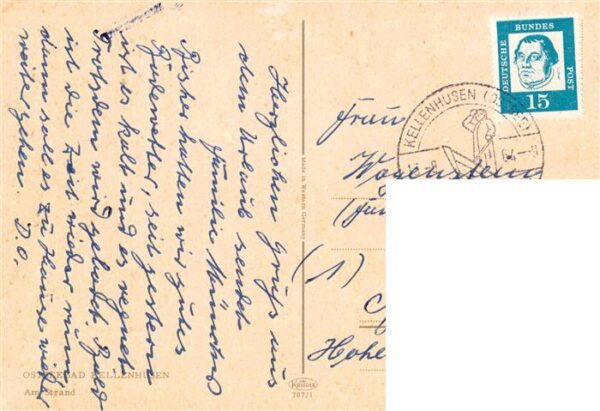 Herzlichen Gruß aus
dem Urlaub sendet
Familie
Bisher hatten wir gutes
Badewetter, seit gestern
ist es kalt und es regnet
Trotzdem wird gebadet. Bald
ist die Zeit wieder rum,
dann soll es zu Hause wieder
weiter gehen. D.O.
OSTSEEBAD KELLENHUSEN
Am Strand
Made in Western Germany
KRÜGER
707/1
DEUTSCHE BUNDES POST
15
KELLENHUSEN
Frau
(1)
Hohe